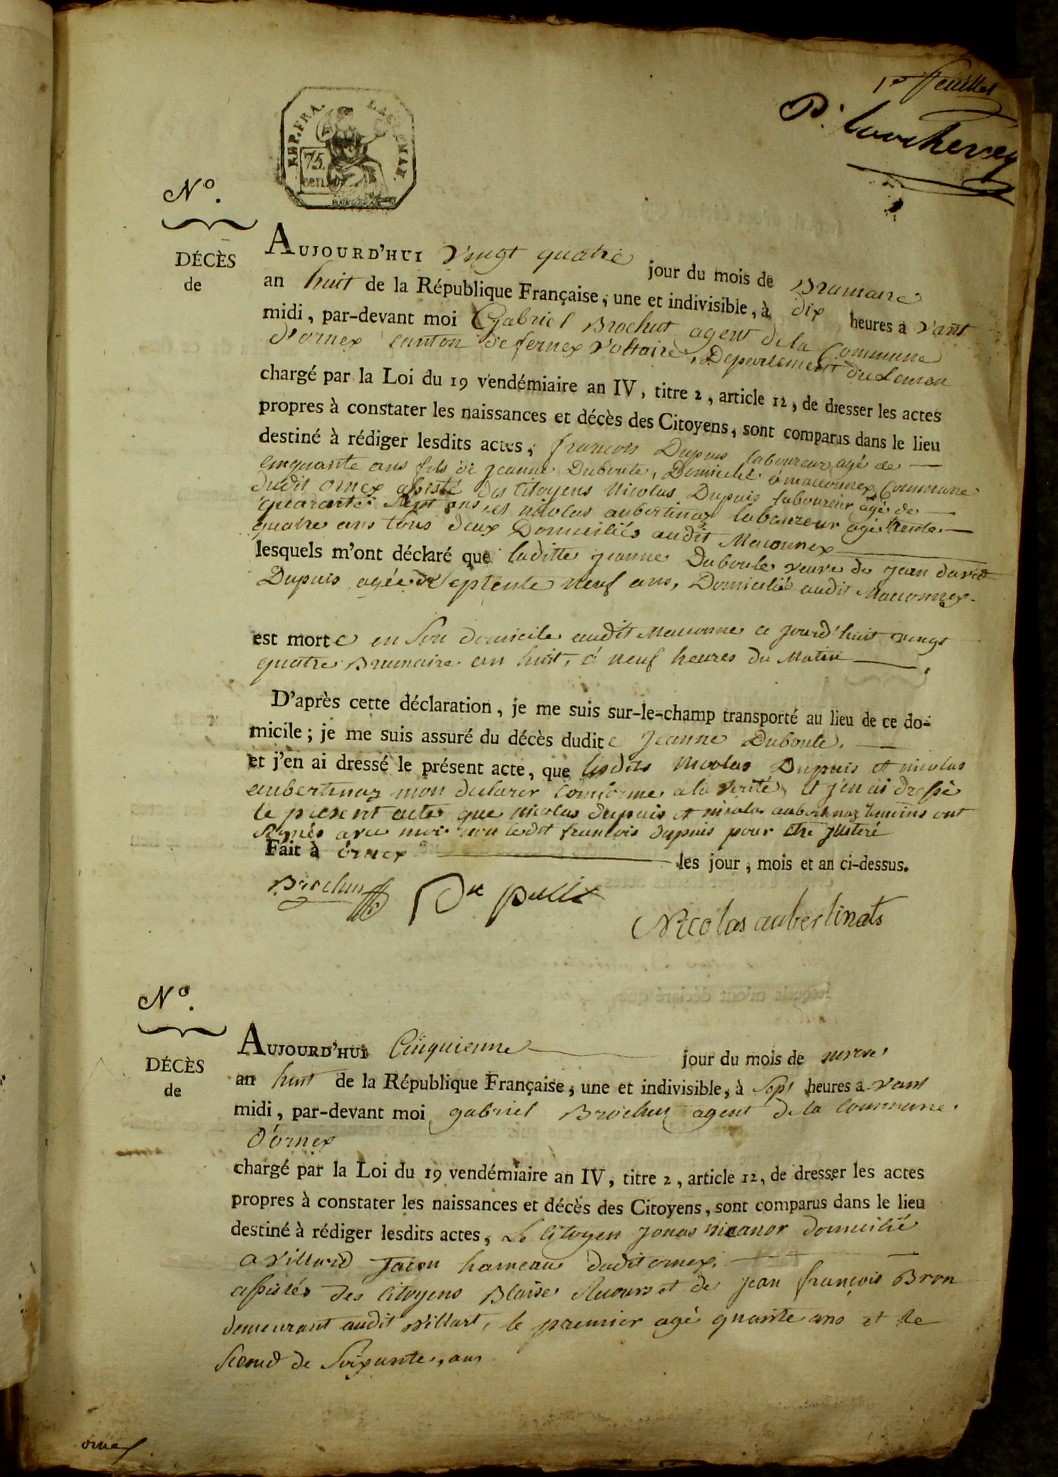 1er feuillet
REP. FRA.
75
cent.
N°.
DÉCÈS
de
AUJOURD'HUI vingt quatre jour du mois de Brumaire
an huit de la République Française, une et indivisible, à dix heures avant
midi, par-devant moi Gabriel Brochut agent de la Commune
d'ornex canton de fernex Voltaire, Département du Leman
chargé par la Loi du 19 vendémiaire an IV, titre 2, article 12, de dresser les actes
propres à constater les naissances et décès des Citoyens, sont comparus dans le lieu
destiné à rédiger lesdits actes, francois Dupuis laboureur agé de
cinquante ans fils de jeanne Duboule, Domicilié à maconnex Commune
dudit ornex assisté des Citoyens Nicolas Dupuis laboureur agé de
quarante sept ans et nicolas aubertinaz laboureur agé trente
quatre ans tous deux Domiciliés audit Maconnex
lesquels m'ont déclaré que laditte jeanne Duboule veuve de jean david
Dupuis agée de Septente neuf ans, Domicilié audit Maconnex.
est morte en son domicile audit Maconne ce jourd'huit vingt
quatre Brumaire an huit, à neuf heures du Matin
D'après cette déclaration, je me suis sur-le-champ transporté au lieu de ce do-
micile; je me suis assuré du décès dudite jeanne Duboule.
et j'en ai dressé le présent acte, que lesdits Nicolas Dupuis et nicolas
aubertinaz mon declarer conforme a la verité, et j'en ai dressé
le present acte que Nicolas dupuis et nicolas aubertinaz temoins ont
signés avec moi non ledit francois dupuis pour etre
Fait à ornex les jour, mois et an ci-dessus.
Brochut
Nicolas aubertinats
N°.
DÉCÈS
de
AUJOURD'HUI Cinquienne jour du mois de nivose
an huit de la République Française, une et indivisible, à Sept heures avant
midi, par-devant moi gabriel Brochut agent de la Commune
d'ornex
chargé par la Loi du 19 vendémiaire an IV, titre 2, article 12, de dresser les actes
propres à constater les naissances et décès des Citoyens, sont comparus dans le lieu
destiné à rédiger lesdits actes, Le Citoyen Jonas nicanor domicilié
a Villard Tacon hameau dudit ornex.
assistés des Citoyens Blaise et de jean françois Bron
demeurant audit Villart, le premier agé quante ans et le
second de Soixante, ans
ornex